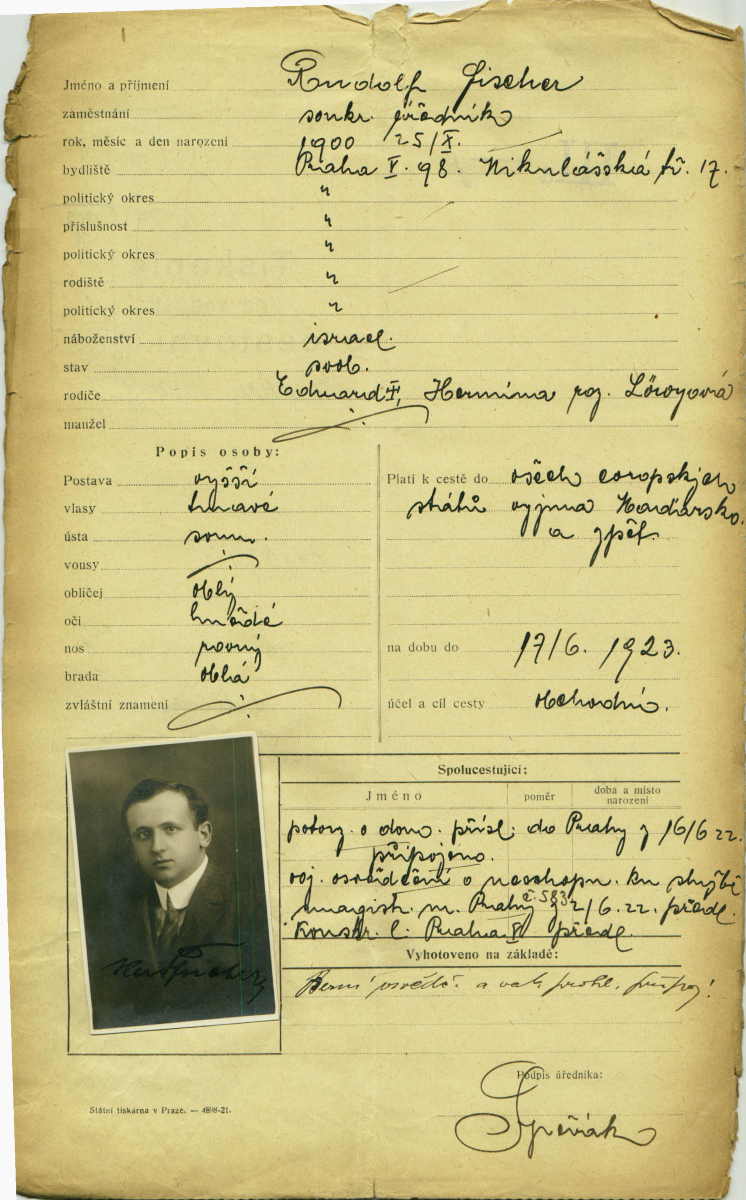 Jméno a příjmení Rudolf Fischer
zaměstnání soukr. úředník
rok, měsíc a den narození 1900 25/X.
bydliště Praha V. 98. Mikulášská tř. 17.
politický okres "
příslušnost "
politický okres "
rodiště "
politický okres "
náboženství israel.
stav svob.
rodiče Eduard †, Hermína roz. Löwyová
manžel
Popis osoby:
Postava vyšší
vlasy tmavé
ústa soum.
vousy
obličej oblý
oči hnědé
nos rovný
brada oblá
zvláštní znamení
Platí k cestě do všech evropských
států vyjma Maďarsko
a zpět
na dobu do 17/6. 1923.
účel a cíl cesty obchodní.
Spolucestující:
Jméno poměr doba a místo
narození
potvrz. o dom. přísl. do Prahy z 16/6 22.
připojeno.
voj. osvědčení o neschopn. ku službě
magistr. m. Prahy č. 583 z 2/6. 22. předl.
Konskr. l. Praha V předl.
Vyhotoveno na základě:
Berní osvědč. a
Podpis úředníka:
Státní tiskárna v Praze. — 4898-21.